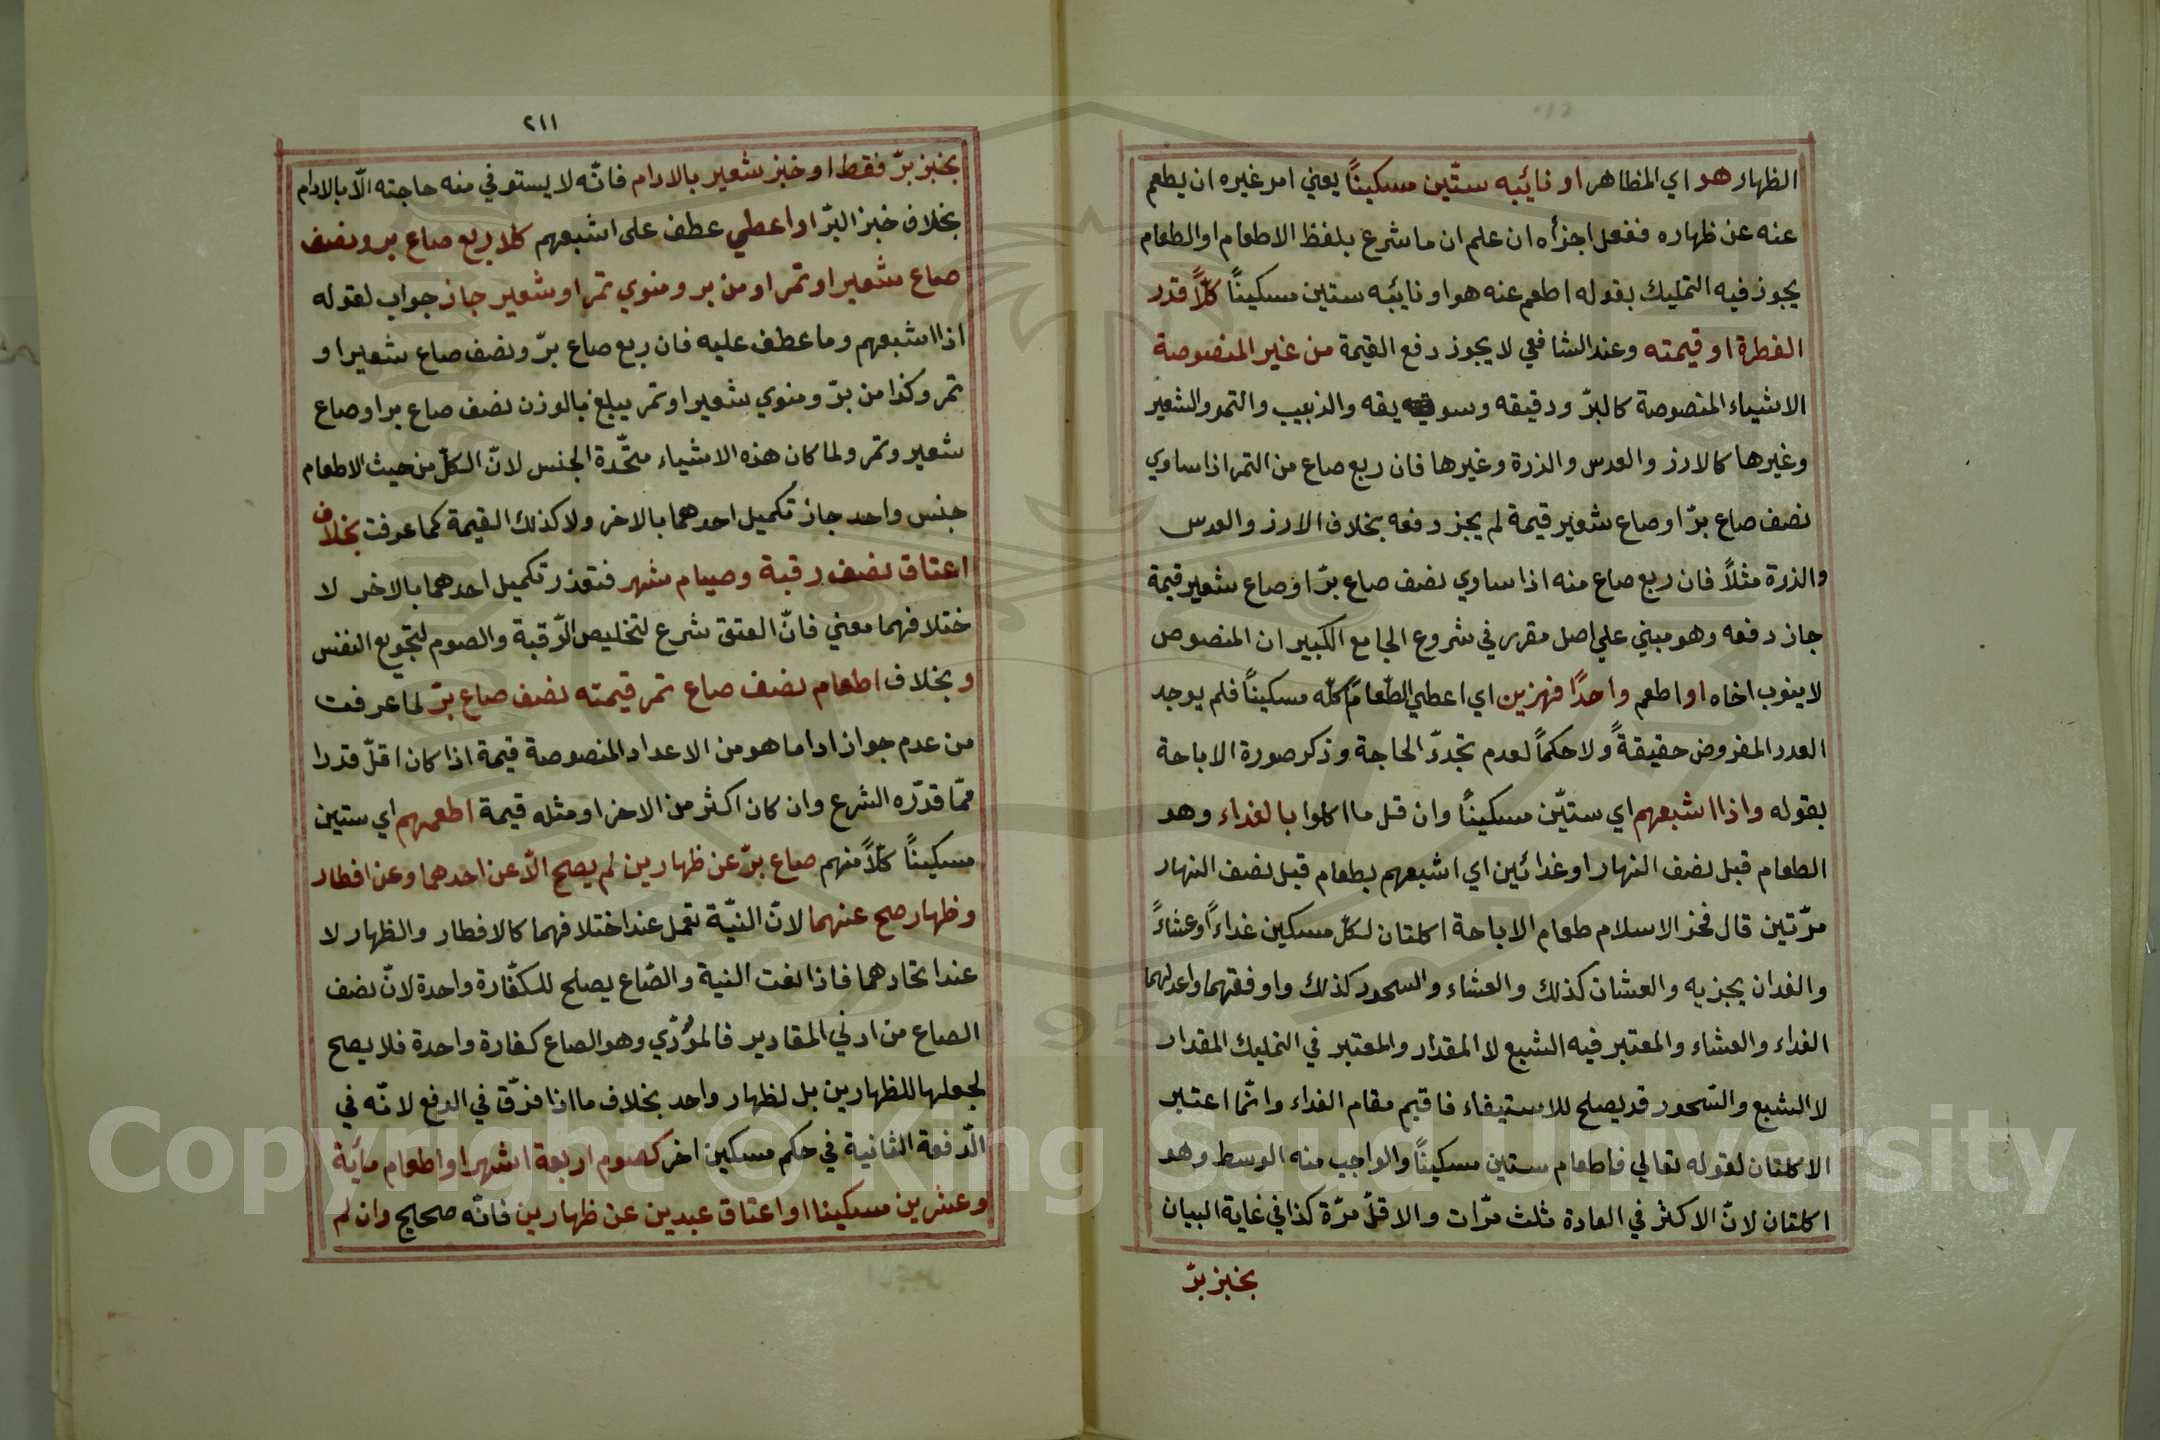 الظهار هو اي المظاهر او نائبه ستّين مسكينًا يعني امر غيره ان يطعم
عنه عن ظهاره ففعل اجزأه ان علم ان ما شرع بلفظ الاطعام او الطعام
يجوز فيه التمليك بقوله اطعم عنه هو او نائبه ستين مسكينًا كلًّا قدر
الفطرة او قيمته وعند الشافعي لا يجوز دفع القيمة من غير المنصوصة
الاشياء المنصوصة كالبرّ ودقيقه وسويقه والزبيب والتمر والشعير
وغيرها كالارز والعدس والذرة وغيرها فان ربع صاع من التمر اذا ساوي
نصف صاع برّ او صاع شعير قيمة لم يجز دفعه بخلاف الارز والعدس
والذرة مثلاً فان ربع صاع منه اذا ساوي نصف صاع برّ او صاع شعير قيمة
جاز دفعه وهو مبني علي اصل مقرر في شروع الجامع الكبير ان المنصوص
لا ينوب اخاه او اطعم واحدًا فهزين اي اعطي الطّعام كلّه مسكينًا فلم يوجد
العدد المفروض حقيقةً ولا حكمًا لعدم تجدّد الحاجة وذكر صورة الاباحة
بقوله واذا اشبعهم اي ستيّن مسكينًا وان قل ما اكلوا بالغداء وهو
الطعام قبل نصف النهار او غدائين اي اشبعهم بطعام قبل نصف النهار
مرّتين قال فخر الاسلام طعام الاباحة اكلتان لكلّ مسكين غداءً او عشاءً
والغدان يجزيه والعشان كذلك والعشاء والسحور كذلك واوفقهما واعدلهما
الغداء والعشاء والمعتبر فيه الشبع لا المقدار والمعتبر في التمليك المقدار
لا الشبع والسّحور قد يصلح للاستيفاء فاقيم مقام الغداء وانّما اعتبر
الاكلتان لقوله تعالي فاطعام ستين مسكينًا والواجب منه الوسط وهو
اكلتان لانّ الاكثر في العادة ثلث مرّات والاقلّ مرّة كذا في غاية البيان
بخبز برّ
٢١١
بخبز برّ فقط او خبز شعير بالادام فانّه لا يستوفي منه حاجته الّا بالادام
بخلاف خبز البرّ او اعطي عطف على اشبعهم كلا ربع صاع بر ونصف
صاع شعير او تمر او من بر ومنوي تمر او شعير جاز جواب لقوله
اذا اشبعهم وما عطف عليه فان ربع صاع برّ ونصف صاع شعير او
تمر وكذا من برّ ومنوي شعير او تمر يبلغ بالوزن نصف صاع بر او صاع
شعير وتمر ولما كان هذه الاشياء متّحدة الجنس لانّ الكلّ من حيث الاطعام
جنس واحد جاز تكميل احدهما بالاخر ولا كذلك القيمة كما عرفت بخلاف
اعتاق نصف رقبة وصيام شهر فتعذر تكميل احدهما بالاخر لا
ختلافهما معني فانّ العتق شرع لتخليص الرّقبة والصوم لتجويع النفس
وبخلاف اطعام نصف صاع تمر قيمته نصف صاع برّ لما عرفت
من عدم جواز ادا ما هو من الاعداد المنصوصة قيمة اذا كان اقلّ قدرا
ممّا قدّره الشرع وان كان اكثر من الاخر او مثله قيمة اطعمهم اي ستين
مسكينًا كلًّا منهم صاع برّ عن ظهارين لم يصح الّا عن احدهما وعن افطار
وظهار صح عنهما لانّ النيّة تعمل عند اختلافهما كالافطار والظهار لا
عند اتحادهما فاذا لغت النية والصّاع يصلح للكفّارة واحدة لانّ نصف
الصاع من ادني المقادير فالمؤدّي وهو الصاع كفارة واحدة فلا يصح
لجعلها للظهارين بل لظهار واحد بخلاف ما اذا فرّق في الدفع لانّه في
الدّفعة الثانية في حكم مسكين اخر كصوم اربعة اشهر او اطعام مأية
وعشرين مسكينا او اعتاق عبدين عن ظهارين فانّه صحايح وان لم
Copyright © King Saud University